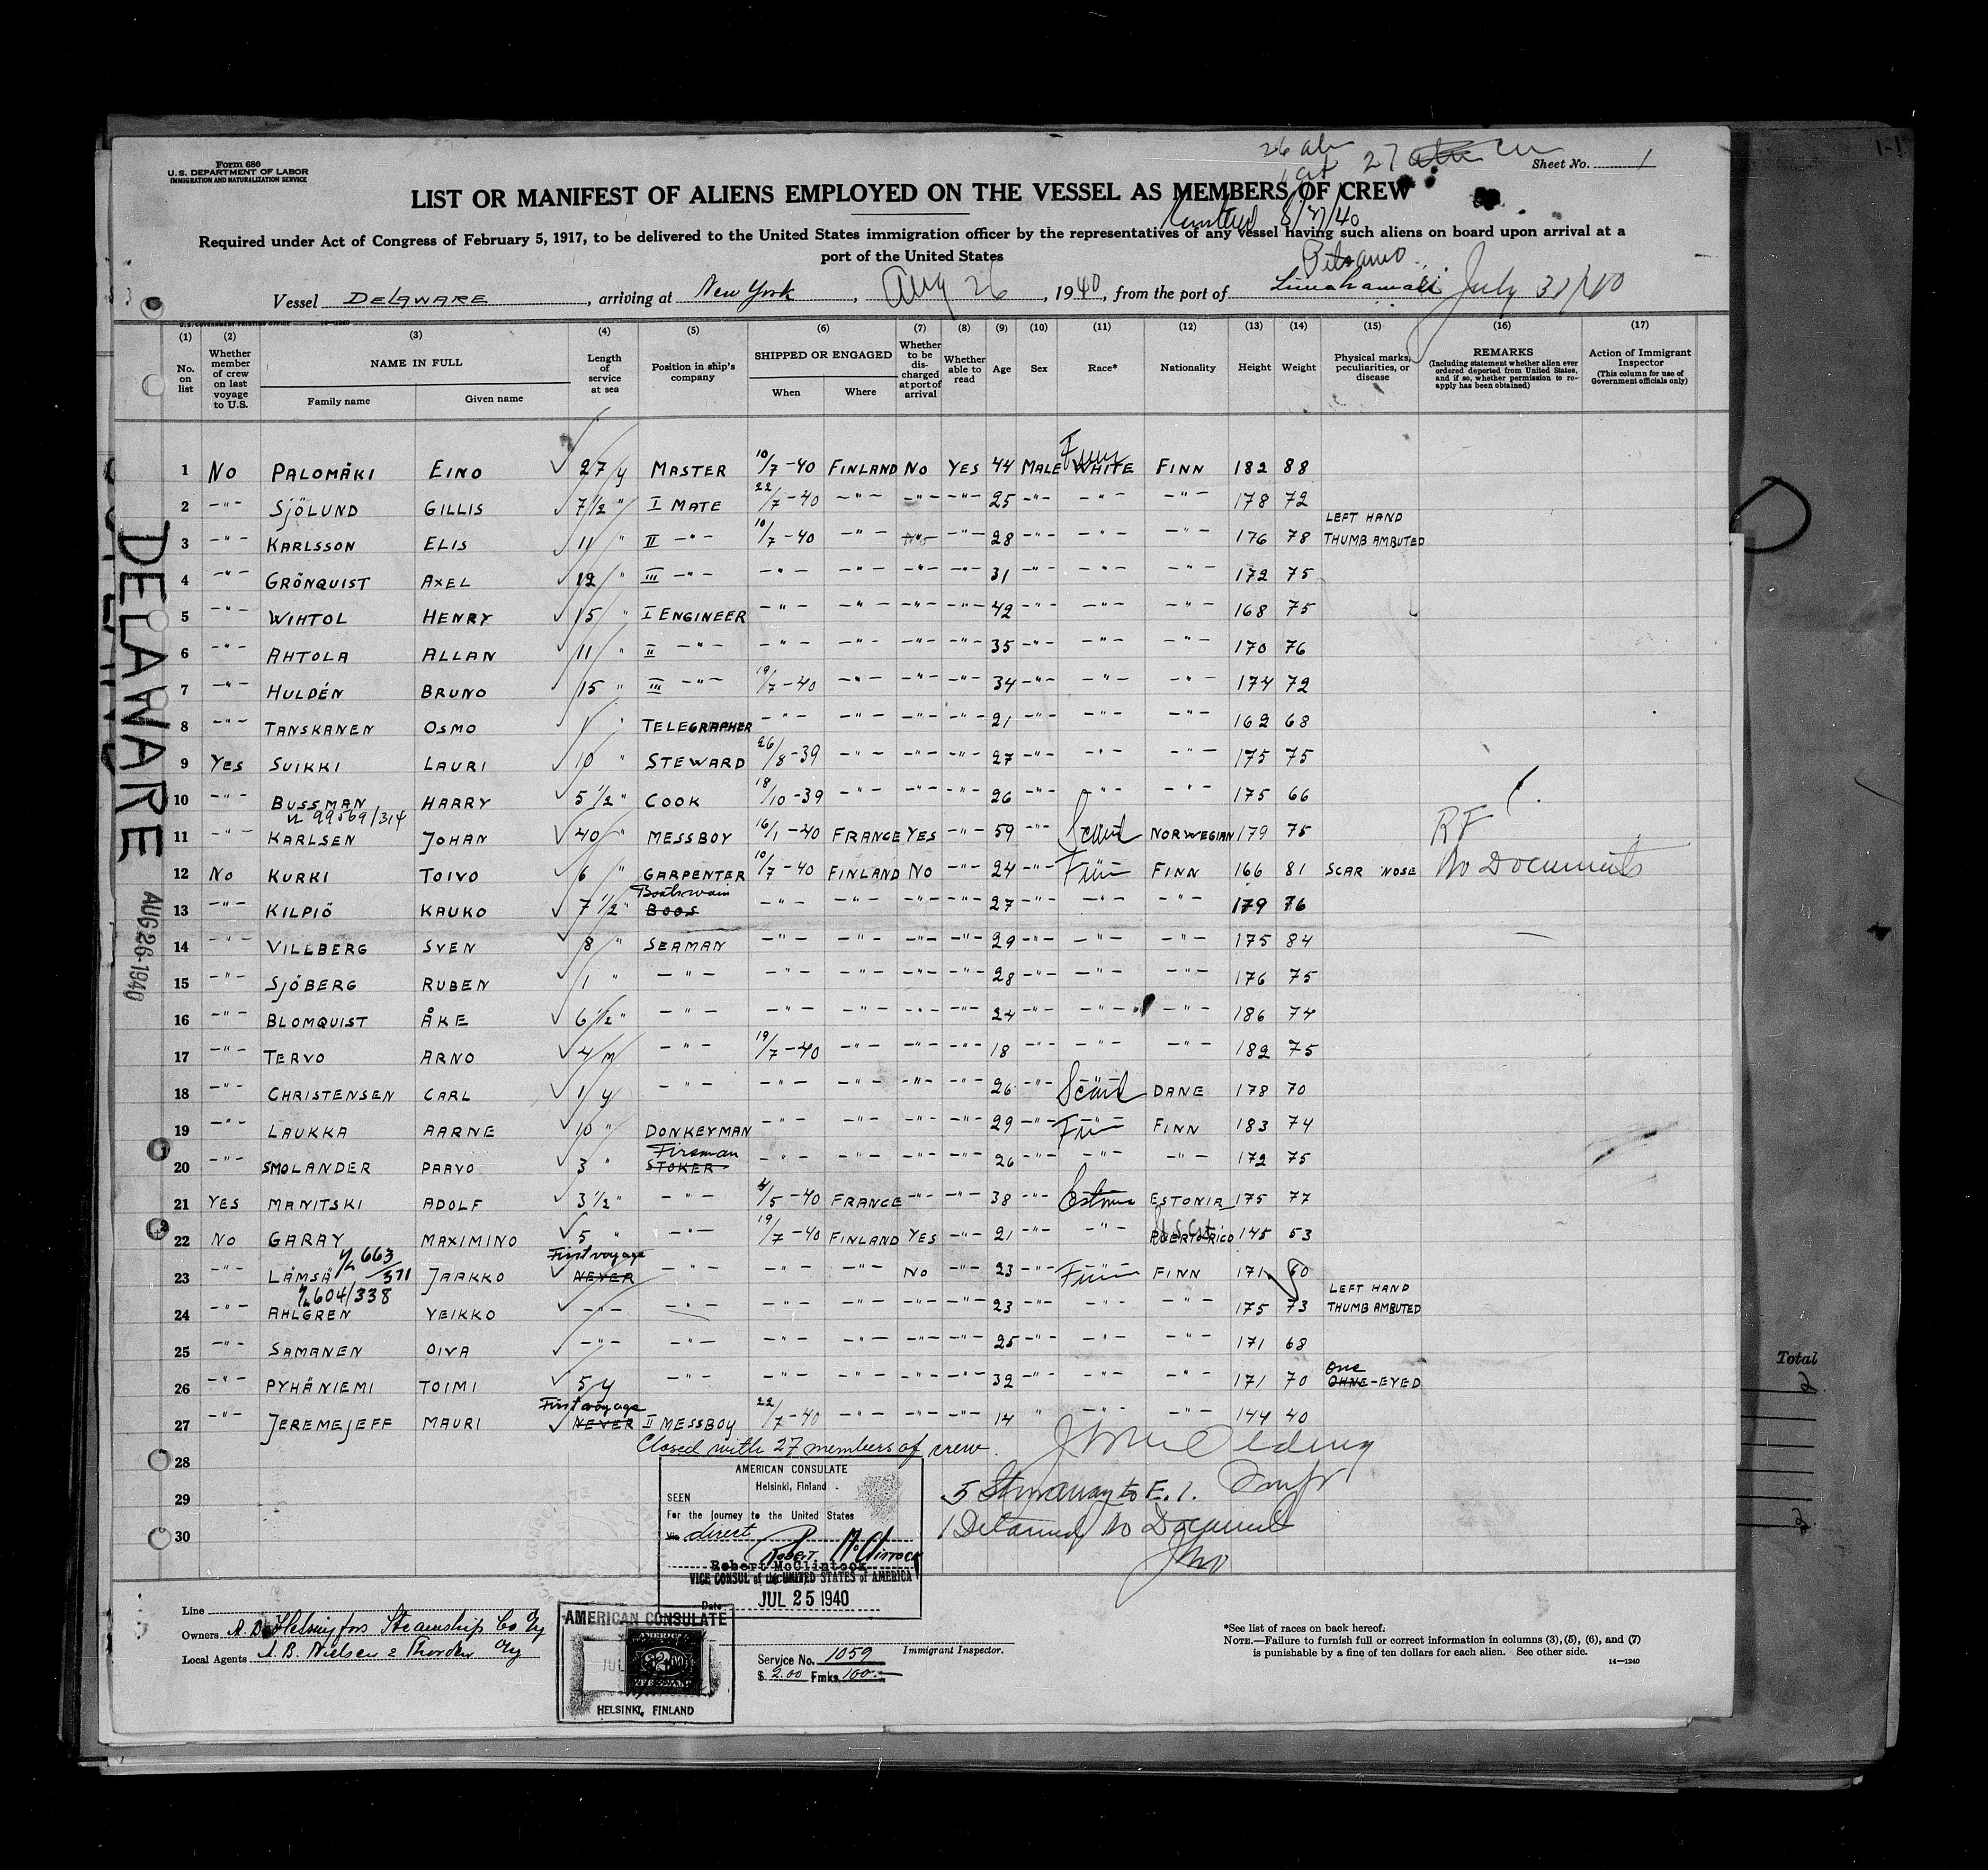 Form 680
U.S. DEPARTMENT OF LABOR
IMMIGRATION AND NATURALIZATION SERVICE
Sheet No. 1
LIST OR MANIFEST OF ALIENS EMPLOYED ON THE VESSEL AS MEMBERS OF CREW
8/27/40
Required under Act of Congress of February 5, 1917, to be delivered to the United States immigration officer by the representatives of any vessel having such aliens on board upon arrival at a
port of the United States
Petsamo
Vessel DELAWARE, arriving at New York, Aug 26, 1940, from the port of Liinahamari July 31/40
(1) (2) (3) (4) (5) (6) (7) (8) (9) (10) (11) (12) (13) (14) (15) (16) (17)
No. on list
Whether member of crew on last voyage to U.S.
NAME IN FULL
Family name Given name
Length of service at sea
Position in ship's company
SHIPPED OR ENGAGED
When Where
Whether to be discharged at port of arrival
Whether able to read
Age Sex Race* Nationality Height Weight
Physical marks, peculiarities, or disease
REMARKS
(Including statement whether alien ever ordered deported from United States, and if so, whether permission to reapply has been obtained)
Action of Immigrant Inspector
(This column for use of Government officials only)
1 NO PALOMÄKI EINO 27 y MASTER 10/7-40 FINLAND NO YES 44 MALE WHITE Finn FINN 182 88
2 -"- SJÖLUND GILLIS 7 1/2 " I MATE 22/7-40 -"- -"- -"- 25 -"- -"- -"- 178 72
3 -"- KARLSSON ELIS 11 " II -"- 10/7-40 -"- -"- -"- 28 -"- -"- -"- 176 78 LEFT HAND THUMB AMBUTED
4 -"- GRÖNQUIST AXEL 12 " III -"- -"- -"- -"- -"- 31 -"- -"- -"- 172 75
5 -"- WIHTOL HENRY 15 " I ENGINEER -"- -"- -"- -"- 42 -"- -"- -"- 168 75
6 -"- AHTOLA ALLAN 11 " II -"- -"- -"- -"- -"- 35 -"- -"- -"- 170 76
7 -"- HULDÉN BRUNO 15 " III -"- 19/7-40 -"- -"- -"- 34 -"- -"- -"- 174 72
8 -"- TANSKANEN OSMO 1 " TELEGRAPHER -"- -"- -"- -"- 21 -"- -"- -"- 162 68
9 YES SUIKKI LAURI 10 " STEWARD 26/8-39 -"- -"- -"- 27 -"- -"- -"- 175 75
10 -"- BUSSMAN HARRY 5 1/2 " COOK 18/10-39 -"- -"- -"- 26 -"- -"- -"- 175 66
99569/314
11 -"- KARLSEN JOHAN 40 " MESSBOY 16/1-40 FRANCE YES -"- 59 -"- Scand NORWEGIAN 179 75 RF
12 NO KURKI TOIVO 6 " CARPENTER 10/7-40 FINLAND NO -"- 24 -"- Finn FINN 166 81 SCAR NOSE No Documents
13 -"- KILPIÖ KAUKO 7 1/2 " Boatswain BOOS -"- -"- -"- -"- 27 -"- -"- -"- 179 76
14 -"- VILLBERG SVEN 8 " SEAMAN -"- -"- -"- -"- 29 -"- -"- -"- 175 84
15 -"- SJÖBERG RUBEN 1 " -"- -"- -"- -"- -"- 28 -"- -"- -"- 176 75
16 -"- BLOMQUIST ÅKE 6 1/2 " -"- -"- -"- -"- -"- 24 -"- -"- -"- 186 74
17 -"- TERVO ARNO 4/M -"- 19/7-40 -"- -"- -"- 18 -"- -"- -"- 182 75
18 -"- CHRISTENSEN CARL 1/y -"- -"- -"- -"- -"- 26 -"- Scand DANE 178 70
19 -"- LAUKKA AARNE 10 " DONKEYMAN -"- -"- -"- -"- 29 -"- Finn FINN 183 74
20 -"- SMOLANDER PAAVO 3 " Fireman STOKER -"- -"- -"- -"- 26 -"- -"- -"- 172 75
21 YES MANITSKI ADOLF 3 1/2 " -"- 4/5-40 FRANCE -"- -"- 38 -"- Eston ESTONIA 175 77
22 NO GARAY MAXIMINO 5 " -"- 19/7-40 FINLAND YES -"- 21 -"- -"- PUERTO RICO 145 53
663/371
23 -"- LÄMSÄ JAAKKO First voyage NEVER -"- -"- -"- NO -"- 23 -"- Finn FINN 171 60
604/338
24 -"- AHLGREN VEIKKO -"- -"- -"- -"- -"- -"- 23 -"- -"- -"- 175 73 LEFT HAND THUMB AMBUTED
25 -"- SAMANEN OIVA -"- -"- -"- -"- -"- -"- 25 -"- -"- -"- 171 68
26 -"- PYHÄNIEMI TOIMI 5/y -"- -"- -"- -"- -"- 32 -"- -"- -"- 171 70 One OHNE-EYED
27 -"- JEREMEJEFF MAURI First voyage NEVER II MESSBOY 22/7-40 -"- -"- -"- 14 " -"- -"- 144 40
Closed with 27 members of crew.
28
29
30
5 Stowaway to E.I.
1 Detained No Document
AMERICAN CONSULATE
Helsinki, Finland
SEEN
For the journey to the United States
Via direct
Robert McClintock
Robert McClintock
VICE CONSUL of the UNITED STATES of AMERICA
Date: JUL 25 1940
DELAWARE
AUG 26 1940
Line
Owners A.B. Helsingfors Steamship Co Oy
Local Agents A.B. Nielsen & Thorden Oy
AMERICAN CONSULATE
HELSINKI, FINLAND
Service No. 1059
$ 2.00 Fmks. 100.-
Immigrant Inspector.
*See list of races on back hereof.
NOTE.—Failure to furnish full or correct information in columns (3), (5), (6), and (7)
is punishable by a fine of ten dollars for each alien. See other side.
14—1240
Total